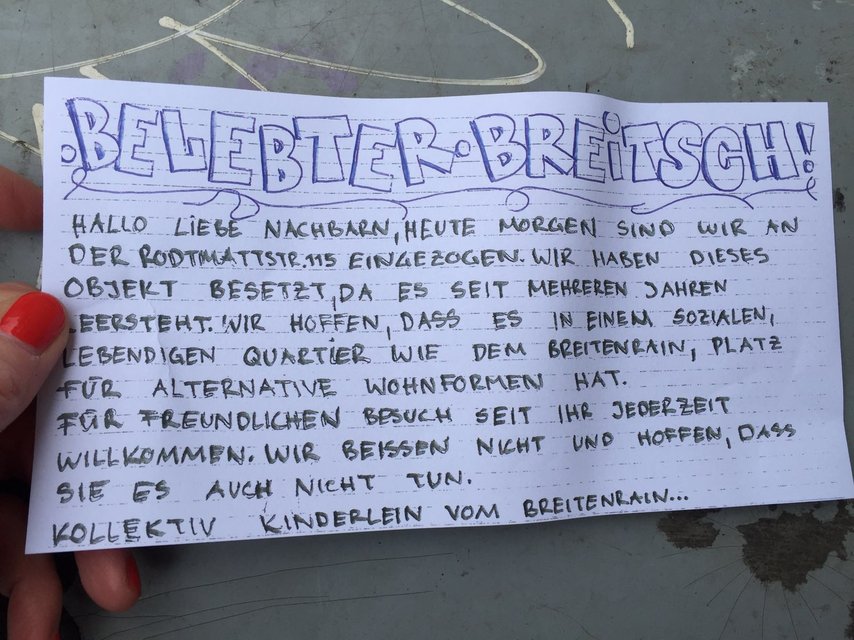 BELEBTER·BREiTSCH!
HALLO LIEBE NACHBARN, HEUTE MORGEN SIND WIR AN
DER RODTMATTSTR.115 EINGEZOGEN. WIR HABEN DIESES
OBJEKT BESETZT, DA ES SEIT MEHREREN JAHREN
LEERSTEHT. WIR HOFFEN, DASS ES IN EINEM SOZIALEN,
LEBENDIGEN QUARTIER WIE DEM BREITENRAIN, PLATZ
FÜR ALTERNATIVE WOHNFORMEN HAT.
FÜR FREUNDLICHEN BESUCH SEIT IHR JEDERZEIT
WILLKOMMEN. WIR BEISSEN NICHT UND HOFFEN, DASS
SIE ES AUCH NICHT TUN.
KOLLEKTIV KINDERLEIN VOM BREITENRAIN...